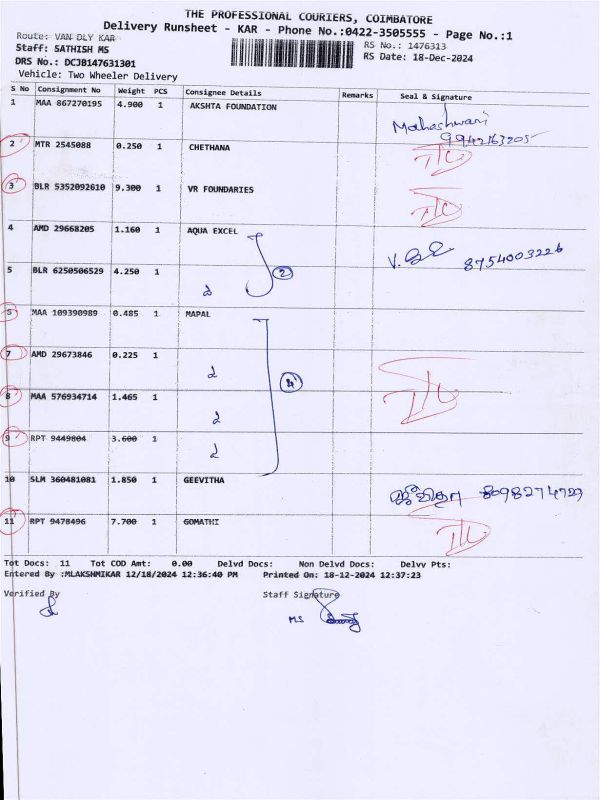 THE PROFESSIONAL COURIERS, COIMBATORE
Delivery Runsheet - KAR - Phone No.:0422-3505555 - Page No.:1
Route: VAN DLY KAR
RS No.: 1476313
Staff: SATHISH MS
RS Date: 18-Dec-2024
DRS No.: DCJB147631301
Vehicle: Two Wheeler Delivery
S No Consignment No Weight PCS Consignee Details Remarks Seal & Signature
1 MAA 867270195 4.900 1 AKSHTA FOUNDATION
Maheshwari
9942163205
2 MTR 2545088 0.250 1 CHETHANA
3 BLR 5352092610 9.300 1 VR FOUNDARIES
4 AMD 29668205 1.160 1 AQUA EXCEL
8754003226
5 BLR 6250506529 4.250 1
2
MAA 109390989 0.485 1 MAPAL
7 AMD 29673846 0.225 1
4
8 MAA 576934714 1.465 1
9 RPT 9449804 3.600 1
10 SLM 360481081 1.850 1 GEEVITHA
ஜீவிதா 8098274729
11 RPT 9478496 7.700 1 GOMATHI
Tot Docs: 11 Tot COD Amt: 0.00 Delvd Docs: Non Delvd Docs: Delvv Pts:
Entered By :MLAKSHMIKAR 12/18/2024 12:36:40 PM Printed On: 18-12-2024 12:37:23
Verified By Staff Signature
MS